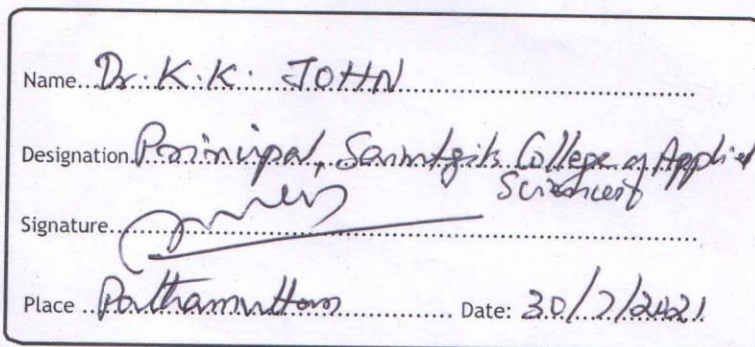 Name Dr. K.K. JOHN
Designation Principal, Saintgits College of Applied
Sciences
Signature
Place Pathamuttom Date: 30/7/2021